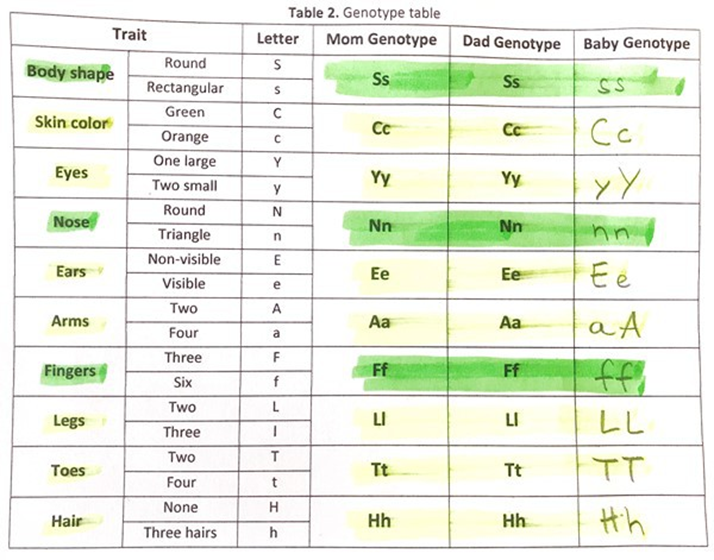 Table 2. Genotype table
Trait Letter Mom Genotype Dad Genotype Baby Genotype
Body shape Round S Ss Ss ss
Rectangular s
Skin color Green C Cc Cc Cc
Orange c
Eyes One large Y Yy Yy yY
Two small y
Nose Round N Nn Nn nn
Triangle n
Ears Non-visible E Ee Ee Ee
Visible e
Arms Two A Aa Aa aA
Four a
Fingers Three F Ff Ff ff
Six f
Legs Two L Ll Ll LL
Three l
Toes Two T Tt Tt TT
Four t
Hair None H Hh Hh Hh
Three hairs h